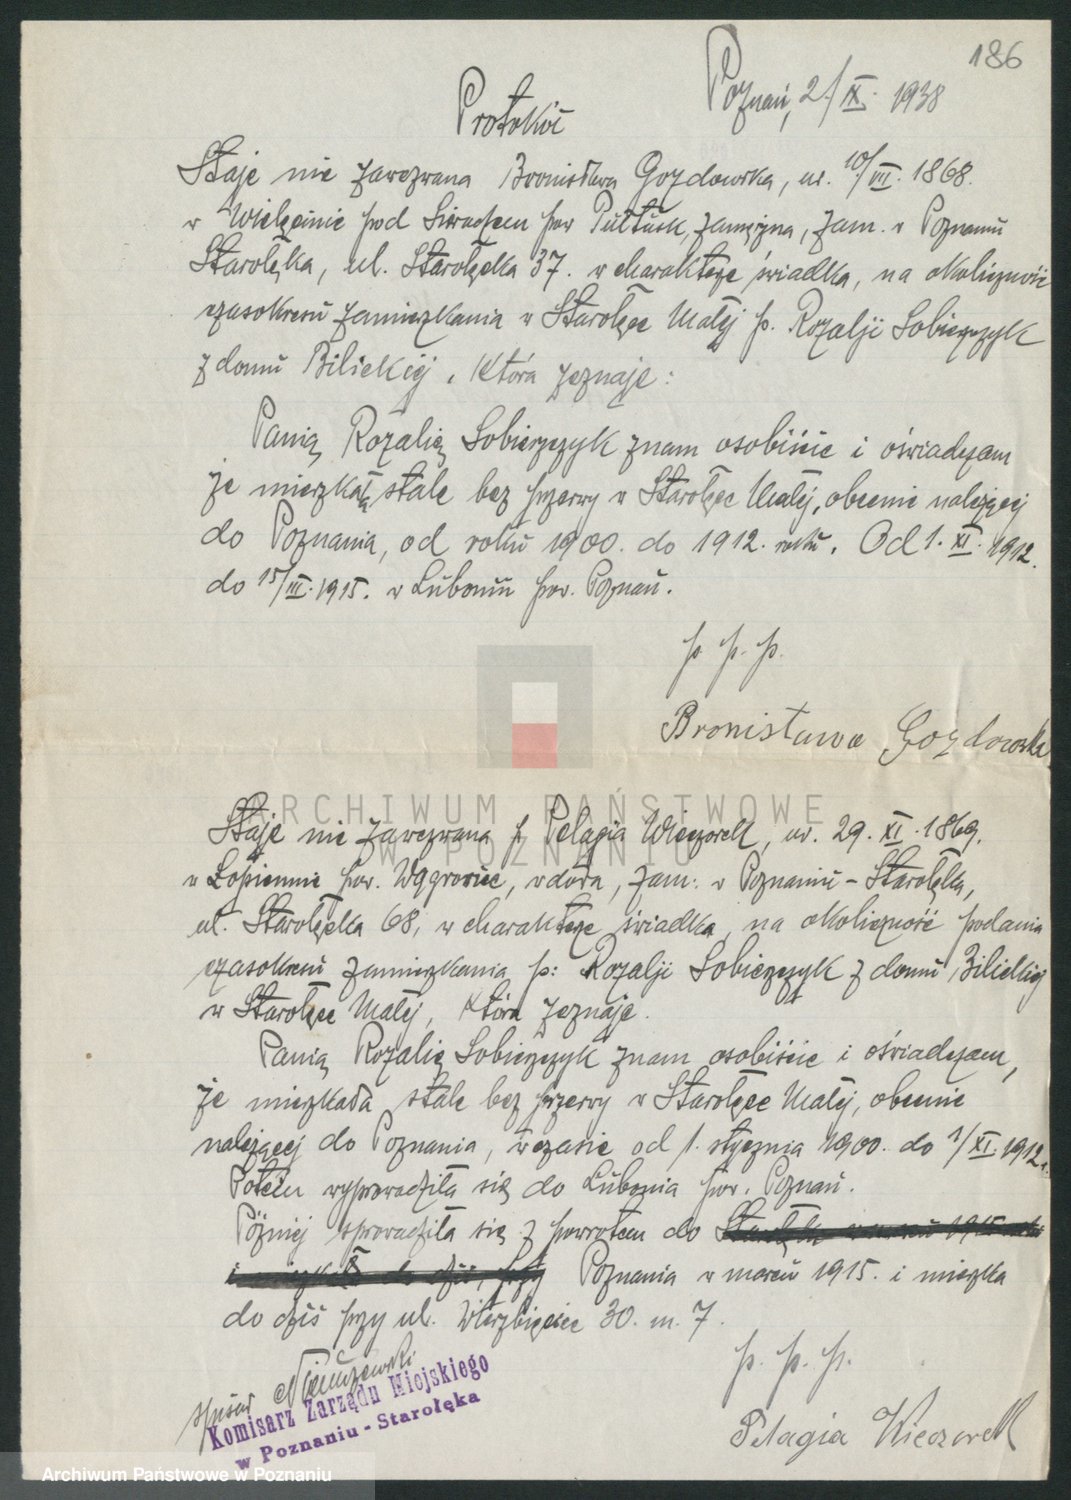 186
Poznań, 2/IX. 1938
Protokół
Staje nie zawezwana Bronisława Gozdowska, ur. 10/VII. 1868.
w pod pow Pułtusk, zamężna, zam. w Poznaniu
Starołęka, ul. Starołęcka 37. w charakterze świadka, na okoliczność
czasokresu zamieszkania w Starołęce Małej p. Rozalji Sobierzczyk
z domu Bilickiej, która zeznaje:
Panią Rozalię Sobierzczyk znam osobiście i oświadczam
że mieszkała stale bez przerwy w Starołęce Małej, obecnie należącej
do Poznania, od roku 1900. do 1912. roku. Od 1. XI. 1912.
do 15/III. 1915. w Luboniu pow. Poznań.
p. p. p.
Bronisława Gozdowska
ARCHIWUM PAŃSTWOWE
W POZNANIU
Staje nie zawezwana p. Pelagia Wieczorek, ur. 29. XI. 1869.
w Łopiennie pow. Wągrowiec, wdowa, zam. w Poznaniu - Starołęka,
ul. Starołęcka 68, w charakterze świadka, na okoliczność podania
czasokresu zamieszkania p: Rozalji Sobierzczyk z domu Bilickiej
w Starołęce Małej, która zeznaje.
Panią Rozalię Sobierzczyk znam osobiście i oświadczam,
że mieszkała stale bez przerwy w Starołęce Małej, obecnie
należącej do Poznania, w czasie od 1. stycznia 1900. do 1/XI. 1912r.
Potem wyprowadziła się do Lubonia pow. Poznań.
Później sprowadziła się z powrotem do
Poznania w marcu 1915. i mieszka
do dziś przy ul. Wierzbięcice 30. m. 7.
p. p. p.
Pelagia Wieczorek
spisał
Komisarz Zarządu Miejskiego
w Poznaniu - Starołęka
Archiwum Państwowe w Poznaniu